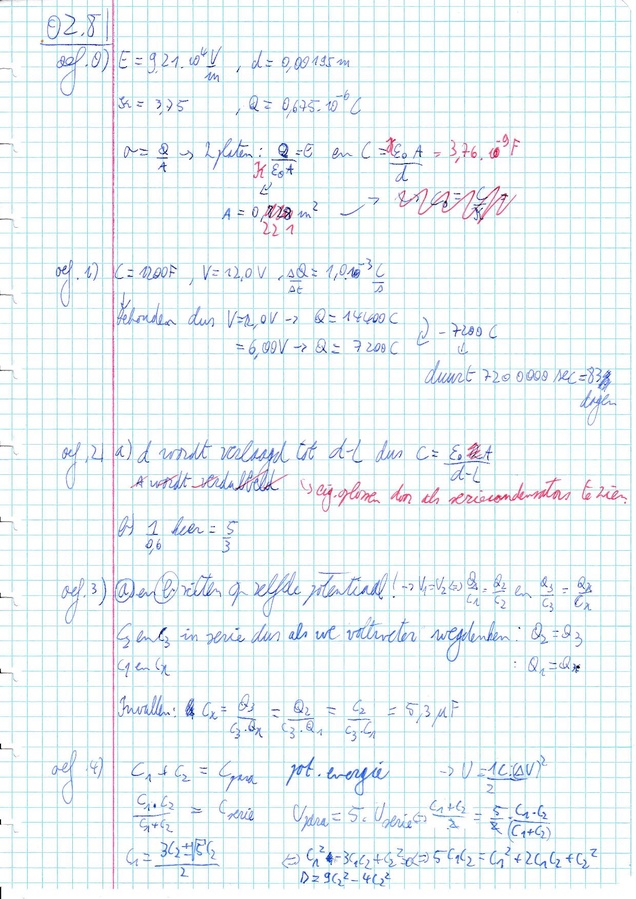 O2.8
oef. 0) E = 9,21·10⁴ V/m , d = 0,00195 m
= 3,75 , Q = 0,675·10⁻⁶ C
σ = Q/A → 2 platen: Q/(K ε₀A) = E en C = K ε₀ A/d = 3,76·10⁻⁹ F
A = 0, 221 m²
oef. 1) C = 1200F , V = 12,0V , ΔQ/Δt = 1,0·10⁻³ C/s
dus V = 12,0V → Q = 14400C
= 6,00V → Q = 7200C } -7200C
duurt 7200000 sec = 83
dagen
oef. 2) a) d wordt verlaagd tot d-L dus C = ε₀ A/(d-L)
A wordt verdubbeld → eig. oplossen door als seriecondensators te zien
b) 1/0,6 keer = 5/3
oef. 3) a en b zitten op zelfde potentiaal! → V₁=V₂ ⇔ Q₁/C₁ = Q₂/C₂ en Q₃/C₃ = Qx/Cx
C₂ en C₃ in serie dus als we voltmeter wegdenken: Q₂ = Q₃
C₁ en Cx : Q₁ = Qx
Invullen: Cx = Q₃/(C₃·Qx) = Q₂/(C₃·Q₁) = C₂/(C₃·C₁) = 5,3 μF
oef. 4) C₁ + C₂ = Cpara pot. energie → U = 1C·(ΔV)²/2
C₁·C₂/(C₁+C₂) = Cserie Upara = 5·Userie ⇔ (C₁+C₂)/2 = 5/2 · C₁·C₂/(C₁+C₂)
C₁ = (3C₂ ± √5C₂)/2 ⇔ C₁² - 3C₁C₂ + C₂² = 0 ⇔ 5C₁C₂ = C₁² + 2C₁C₂ + C₂²
D = 9C₂² - 4C₂²